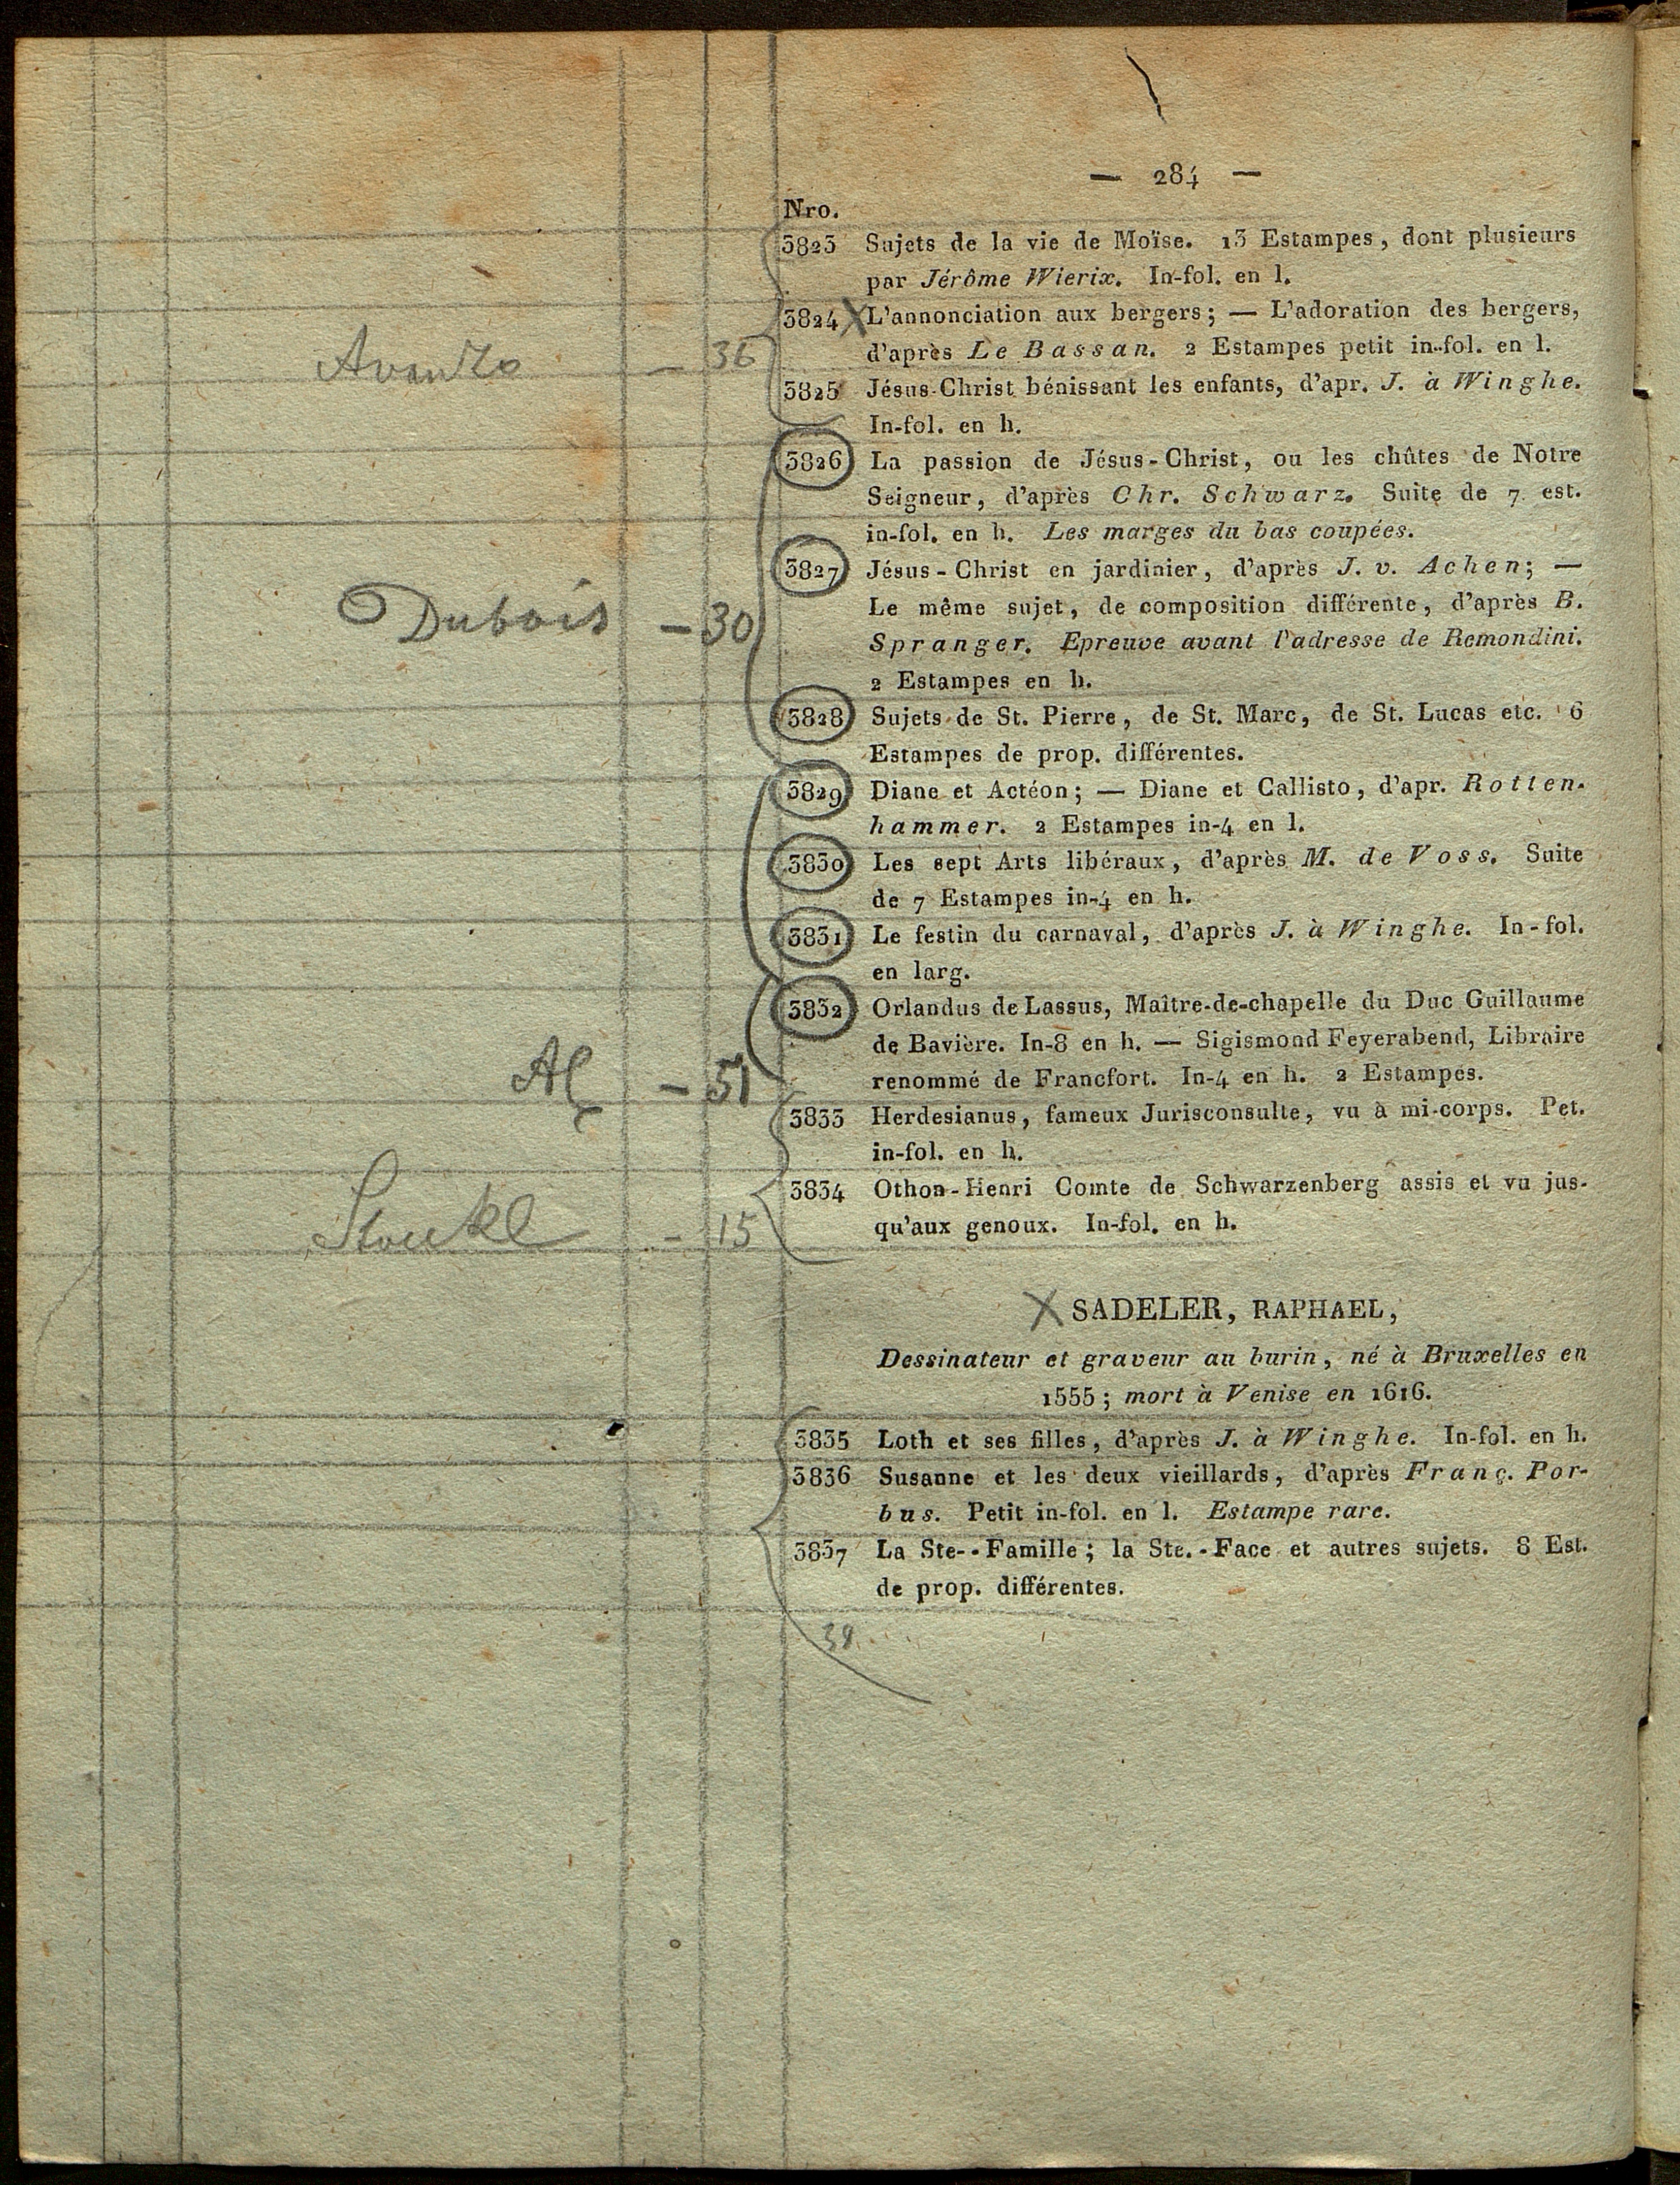 — 284 —
Nro.
3823 Sujets de la vie de Moïse. 13 Estampes, dont plusieurs
par Jérôme Wierix. In-fol. en l.
3824 X L'annonciation aux bergers; — L'adoration des bergers,
d'après Le Bassan. 2 Estampes petit in-fol. en l.
Avanzo — 36
3825 Jésus-Christ bénissant les enfants, d'apr. J. à Winghe.
In-fol. en h.
3826 La passion de Jésus-Christ, ou les chûtes de Notre
Seigneur, d'après Chr. Schwarz. Suite de 7 est.
in-fol. en h. Les marges du bas coupées.
3827 Jésus-Christ en jardinier, d'après J. v. Achen; —
Le même sujet, de composition différente, d'après B.
Dubois — 30
Spranger. Epreuve avant l'adresse de Remondini.
2 Estampes en h.
3828 Sujets de St. Pierre, de St. Marc, de St. Lucas etc. 6
Estampes de prop. différentes.
3829 Diane et Actéon; — Diane et Callisto, d'apr. Rotten-
hammer. 2 Estampes in-4 en l.
3830 Les sept Arts libéraux, d'après M. de Voss. Suite
de 7 Estampes in-4 en h.
3831 Le festin du carnaval, d'après J. à Winghe. In-fol.
en larg.
3832 Orlandus de Lassus, Maître-de-chapelle du Duc Guillaume
de Bavière. In-8 en h. — Sigismond Feyerabend, Libraire
renommé de Francfort. In-4 en h. 2 Estampes.
— 51
3833 Herdesianus, fameux Jurisconsulte, vu à mi-corps. Pet.
in-fol. en h.
3834 Othon-Henri Comte de Schwarzenberg assis et vu jus-
qu'aux genoux. In-fol. en h.
— 15
X SADELER, RAPHAEL,
Dessinateur et graveur au burin, né à Bruxelles en
1555; mort à Venise en 1616.
3835 Loth et ses filles, d'après J. à Winghe. In-fol. en h.
3836 Susanne et les deux vieillards, d'après Franç. Por-
bus. Petit in-fol. en l. Estampe rare.
3837 La Ste--Famille; la Ste.-Face et autres sujets. 8 Est.
de prop. différentes.